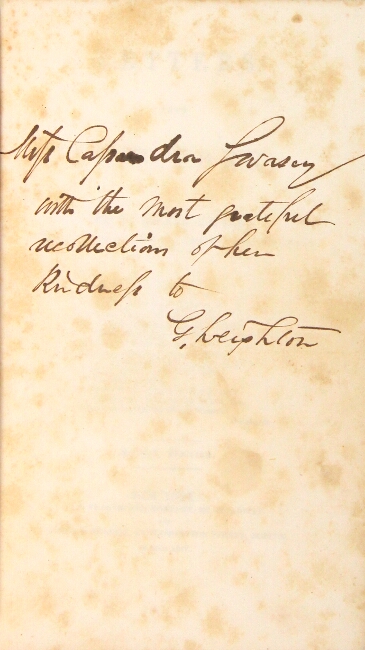 Miss Cassandra
with the most grateful
recollections of her
Kindness to
G. Leighton